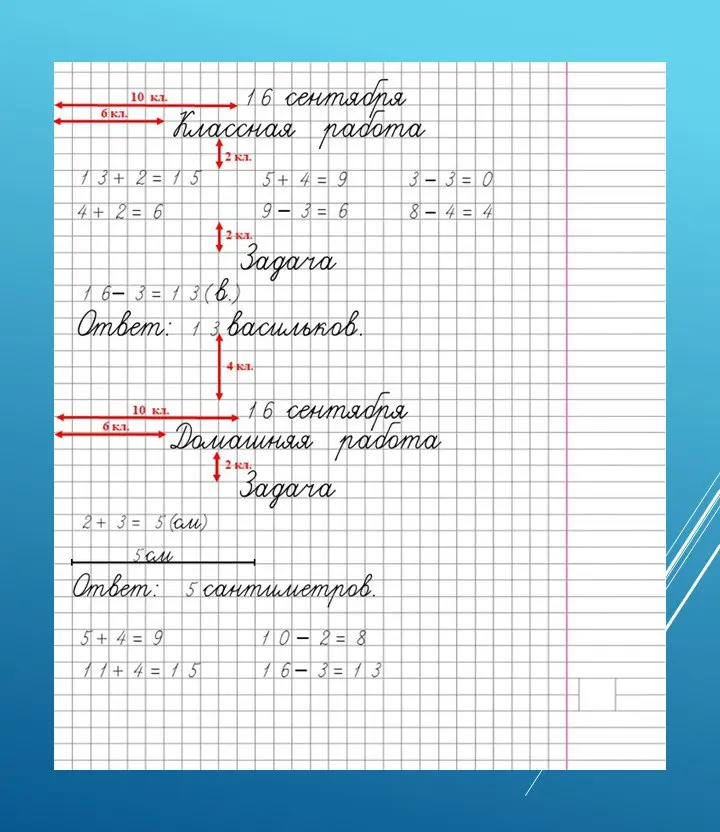 10 кл. 16 сентября
6 кл. Классная работа
2 кл.
13 + 2 = 15 5 + 4 = 9 3 - 3 = 0
4 + 2 = 6 9 - 3 = 6 8 - 4 = 4
2 кл.
Задача
16 - 3 = 13 (в.)
Ответ: 13 васильков.
4 кл.
10 кл. 16 сентября
6 кл. Домашняя работа
2 кл.
Задача
2 + 3 = 5 (см)
5 см
Ответ: 5 сантиметров.
5 + 4 = 9 10 - 2 = 8
11 + 4 = 15 16 - 3 = 13